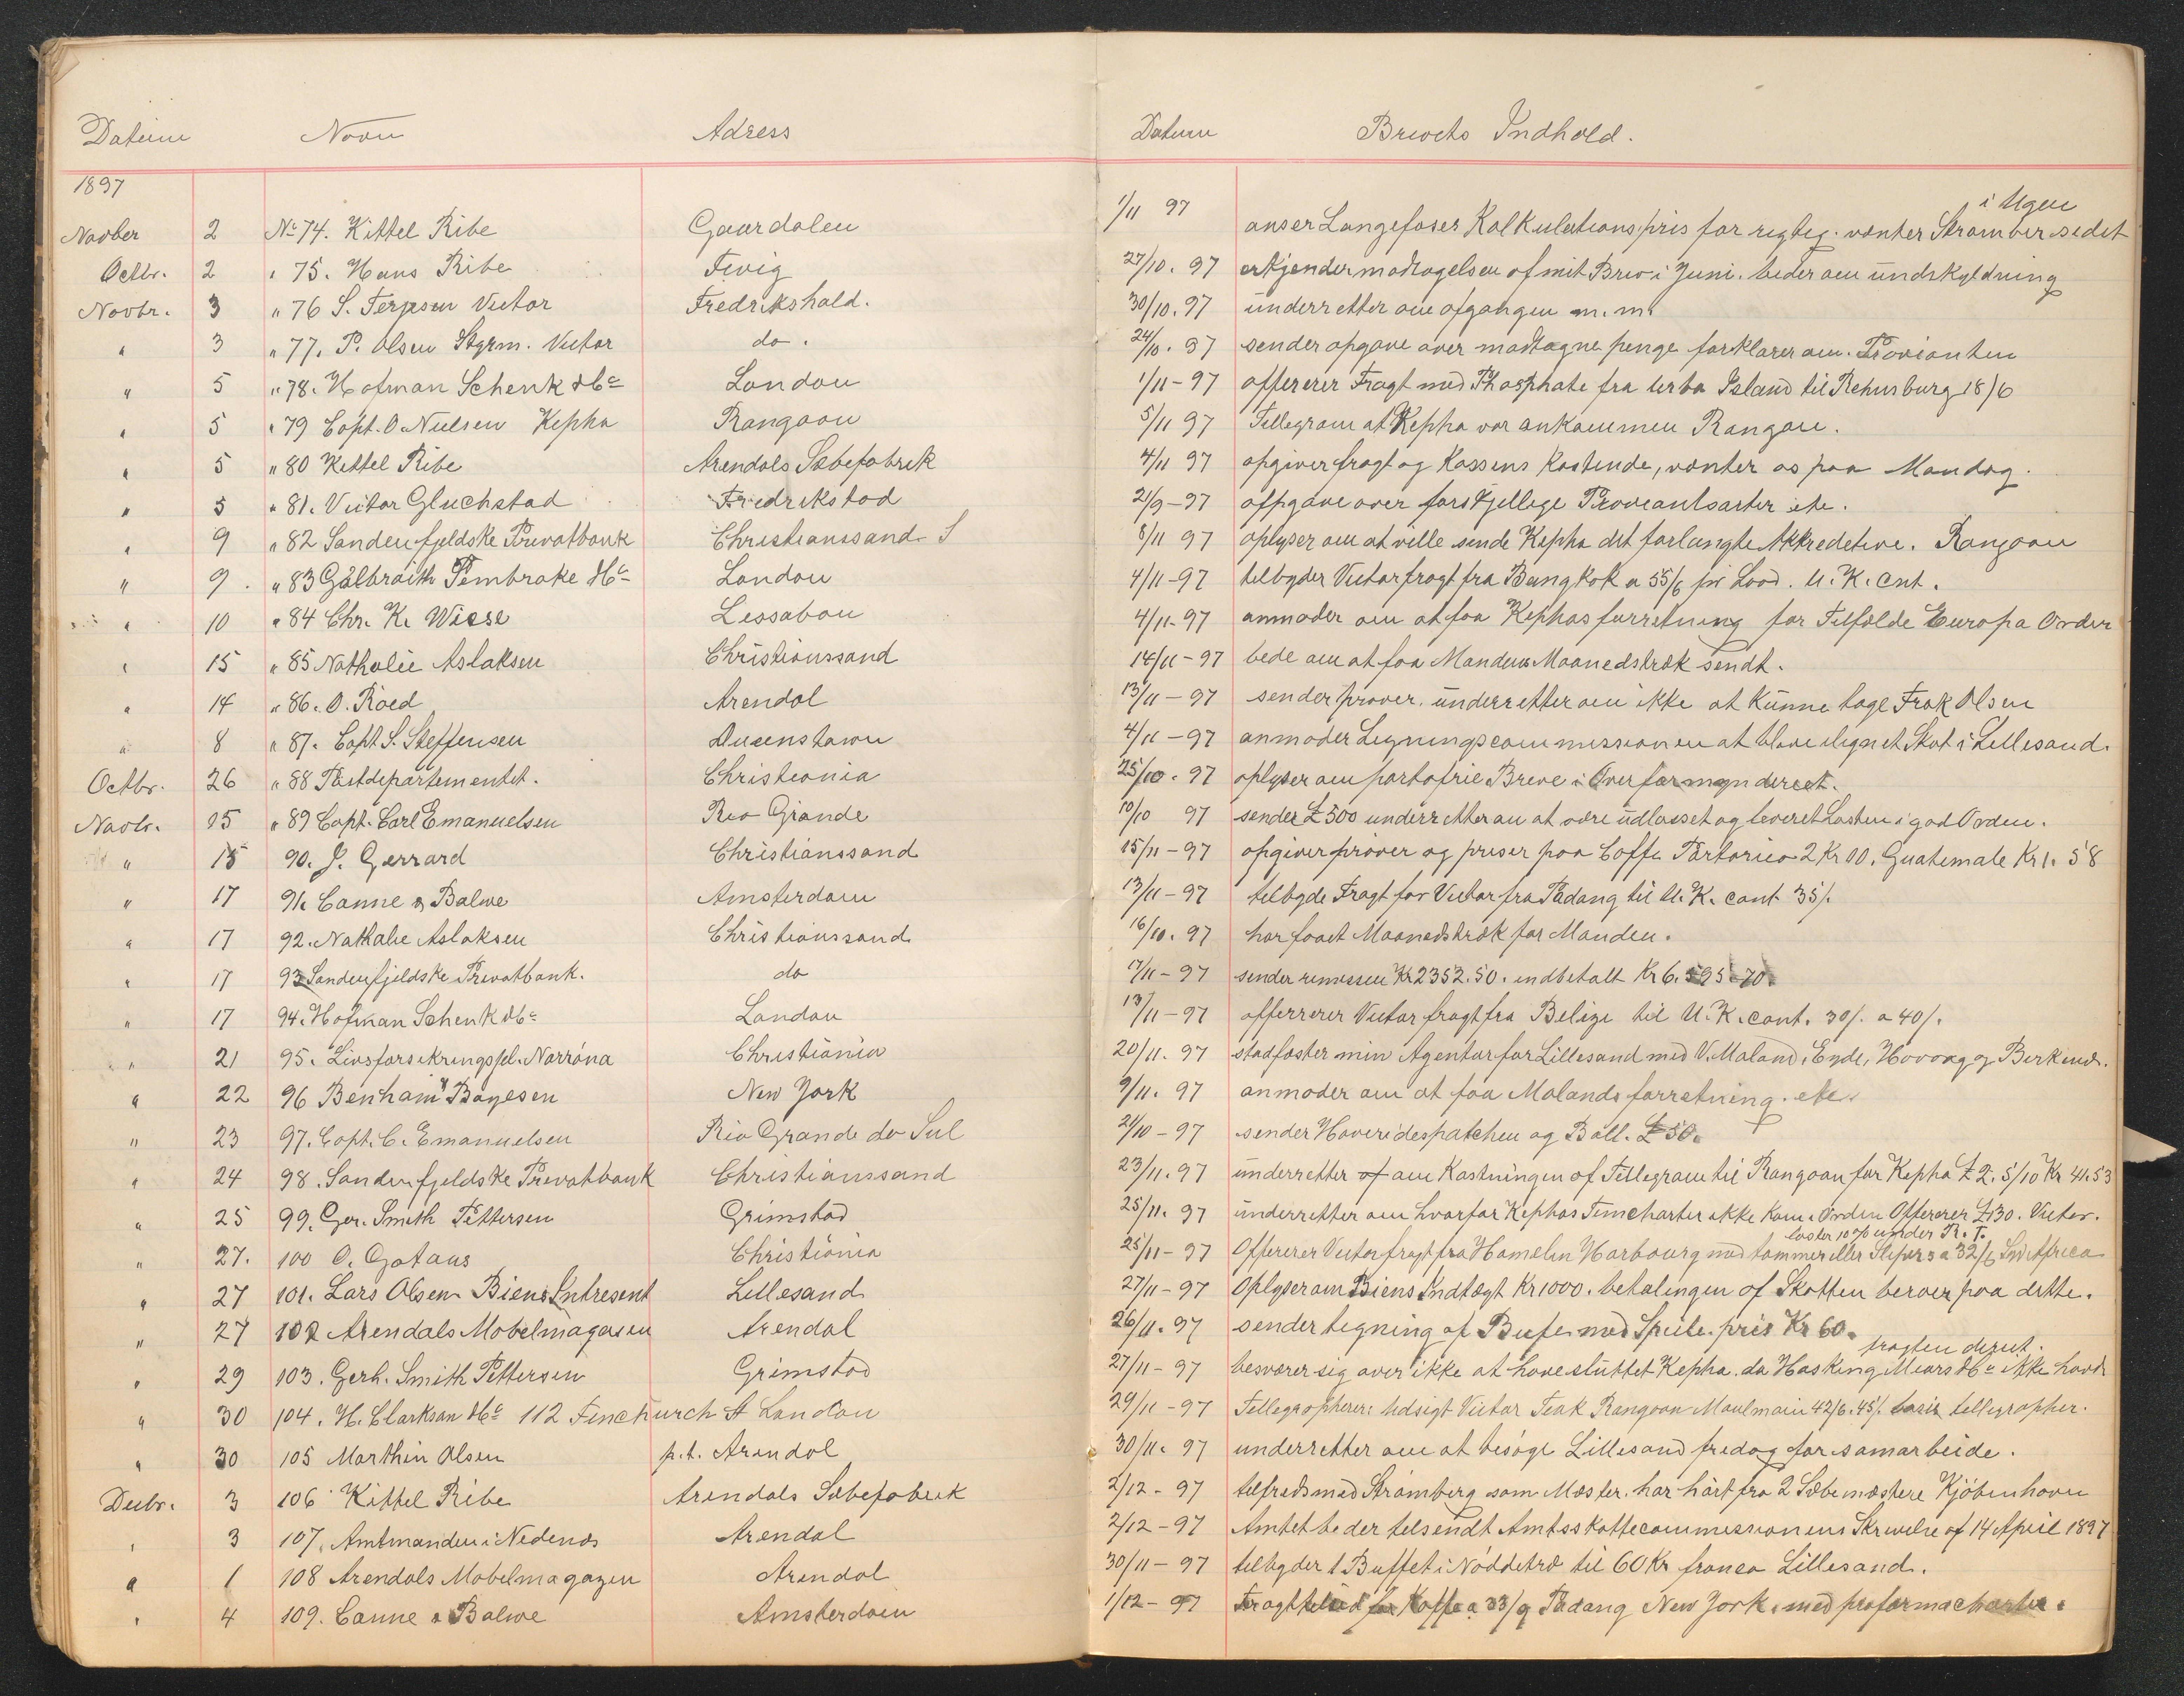 Datum Navn Adress Datum Brevets Indhold.
1897
i Ugen
Novber 2 No 74. Kittel Ribe Gaardalen 1/11 97 anser Langefoses Kalkulationspris for rigtig. venter Strømber sidst
Octbr. 2 " 75. Hans Ribe Fevig 27/10. 97 erkjender modtagelsen af mit Brev i Juni. beder om undskyldning
Novbr. 3 " 76 S. Terjesen Victor Fredrikshald. 30/10. 97 underretter om afgangen m.m.
" 3 " 77. P. Olsen Styrm. Victor do. 24/10. 97 sender opgave over modtagne penge forklarer om Provianten
" 5 " 78. Hofman Schenk & Co London 1/11-97 offererer Fragt med Phosphate fra Island til 18/6
" 5 " 79 Capt. O Nielsen Kepha Rangoon 5/11 97 Tellegram at Kepha var ankommen Rangon.
" 5 " 80 Kittel Ribe Arendals Sæbefabrik 4/11 97 opgiver fragt og Kassens Kostende, venter os paa Mandag.
" 5 " 81. Victor Gluckstad Fredrikstad 21/9-97 opgave over forskjellige Proviantsarter etc.
" 9 " 82 Søndenfjeldske Privatbank Christianssand S 8/11 97 oplyser om at ville sende Kepha det forlangte Akkreditive. Rangoon
" 9. " 83 Galbraith Pembroke & Co London 4/11-97 tilbyder Victor fragt fra Bangkok a 55/6 pr Load. U.K. Cnt.
" 10 " 84 Chr. K. Wiese Lissabon 4/11-97 anmoder om at faa Kephas forretning for Tilfælde Europa Order
" 15 " 85 Nathalie Aslaksen Christianssand 14/11-97 bede om at faa Mandens Maanedstræk sendt.
" 14 " 86. O. Röed Arendal 13/11-97 sender prøver. underretter om ikke at kunne tage Frak Olsen
" 8 " 87. Capt. S. Steffensen Queenstown 4/11-97 anmoder Ligningscommissionen at blive ilignet Skat i Lillesand.
Octbr. 26 " 88 Postdepartementet. Christiania 25/10. 97 oplyser om portofrie Breve i Overformynderiet.
Novbr. 15 " 89 Capt. Carl Emanuelsen Rio Grande 10/10 97 sender £500 underretter om at være udlosset og leveret Lasten i god Orden.
" 15 90. J. Gerrard Christianssand 15/11-97 opgiver prøver og priser paa Caffe Portorico 2 Kr 00. Guatemale Kr 1. 58
" 17 91. Canne & Balwe Amsterdam 13/11-97 tilbyde Fragt for Victor fra Padang til U.K. cont 35/.
" 17 92. Nathalie Aslaksen Christianssand 16/10. 97 har faaet Maanedstræk for Manden.
" 17 93 Søndenfjeldske Privatbank. do 17/11-97 sender remissen Kr 2352.50. indbetalt Kr 6.595.70.
" 17 94. Hofman Schenk & Co London 13/11-97 offererer Victor fragt fra Belize til U.K. cont. 30/. a 40/.
" 21 95. Livsforsikringssel. Norröna Christiânia 20/11. 97 stadfæster min Agentur for Lillesand med V. Moland, Eyde, Høvaag og Birkenæs.
" 22 96 Benham & Boyesen New York 9/11. 97 anmoder om at faa Molands forretning. etc.
" 23 97. Capt. C. Emanuelsen Rio Grande do Sul 21/10-97 sender Haveridespatchen og £50.
" 24 98. Søndenfjeldske Privatbank Christianssand 23/11. 97 underretter af om Kostningen af Tellegram til Rangoon for Kepha £ 2. 5/10 Kr 41.53
" 25 99. Ger. Smith Pettersen Grimstad 25/11. 97 underretter om hvorfor Kephas Timecharter ikke kom i Orden Offererer £130. Victor.
laster 10% under R.T.
" 27. 100 O. Gotaas Christiânia 25/11-97 Offererer Victor fragt fra Hamelen Harbourg med tømmer eller Slipers a 32/6 Syd Africa
" 27 101. Lars Olsen Biens Intresent Lillesand 27/11-97 Oplyser om Biens Indtægt Kr 1000. betalingen af Skatten beroer paa dette.
" 27 102 Arendals Møbelmagasin Arendal 26/11. 97 sender tegning af Bufe med Speile pris Kr 60.
fragten derut.
" 29 103. Gerh. Smith Pettersen Grimstad 27/11-97 besværer sig over ikke at have sluttet Kepha. da Hasking Mears & Co ikke havde
" 30 104. H. Clarkson & Co 112 Fenchurch St London 29/11-97 Tellegrapherer: Udsigt Victor Teak Rangoon Moulmain 42/6. 45/. basis tellegrapher.
" 30 105 Marthin Olsen p.t. Arendal 30/11. 97 underretter om at besöge Lillesand fredag for samarbeide.
Decbr. 3 106 Kittel Ribe Arendals Sæbefabrik 2/12-97 tilfreds med Strömberg som Mester. har hört fra 2 Sæbemestere Kjöbenhavn
" 3 107. Amtmanden i Nedenæs Arendal 2/12-97 Amtet beder tilsendt Amtsskattecommissionens Skrivelse af 14 April 1897
" 1 108 Arendals Møbelmagazin Arendal 30/11-97 tilbyder 1 Buffet i Nøddetræ til 60 Kr franco Lillesand.
" 4 109. Canne & Balwe Amsterdam 1/12-97 Fragttilbud for Kaffe a 33/9 Padang New York. med proformacharter.